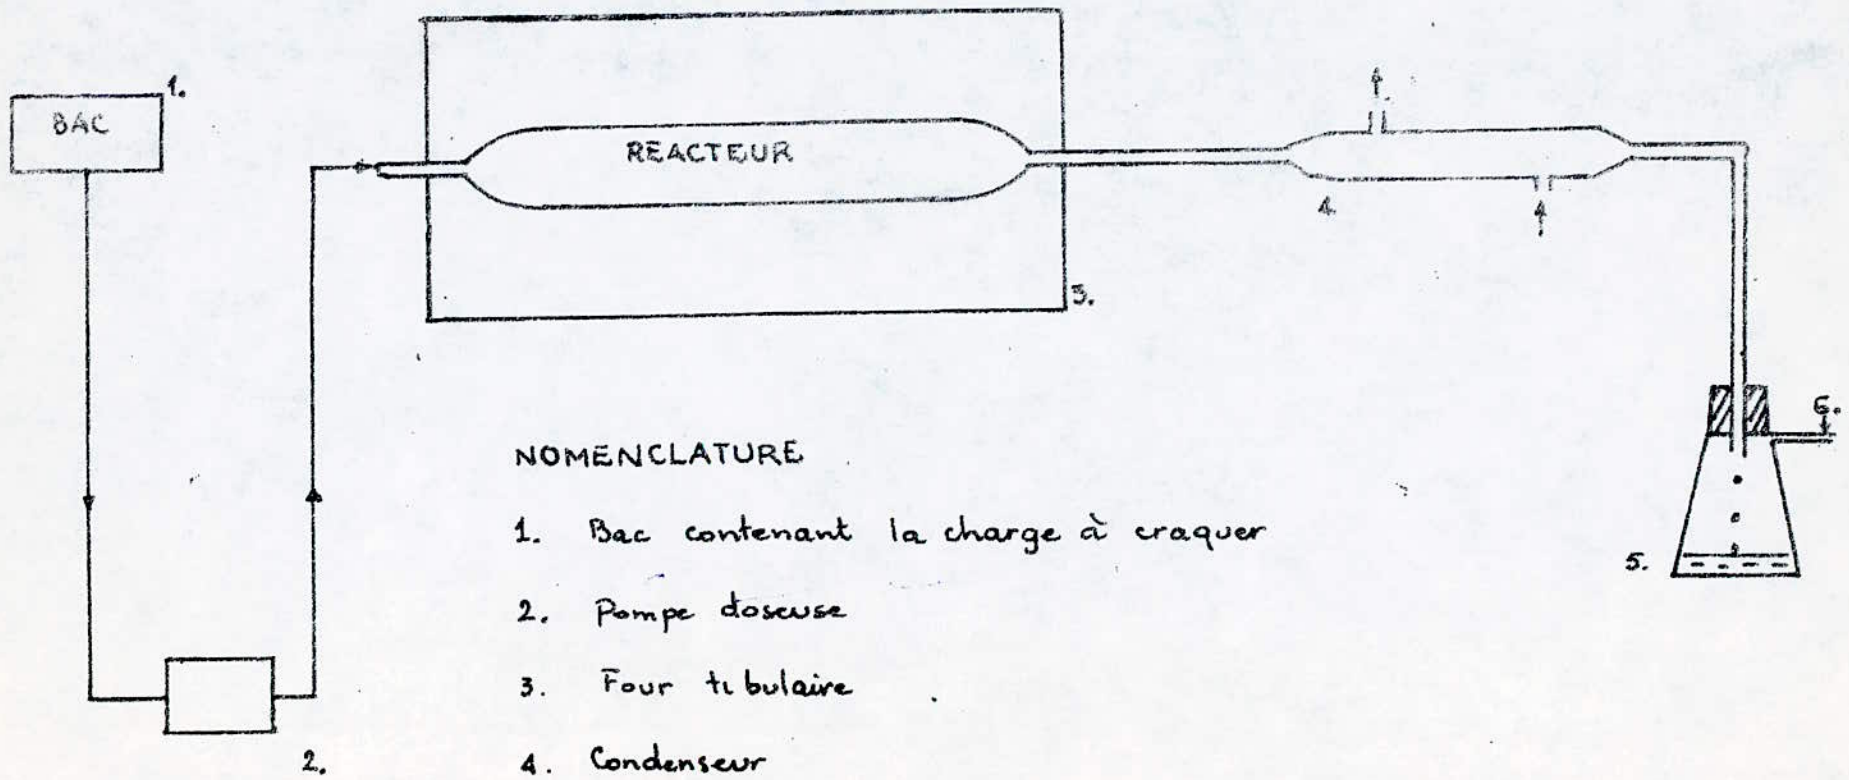 1.
BAC
REACTEUR
4
3.
NOMENCLATURE
6.
1. Bac contenant la charge à craquer
5.
2. Pompe doseuse
3. Four tubulaire
2.
4. Condenseur